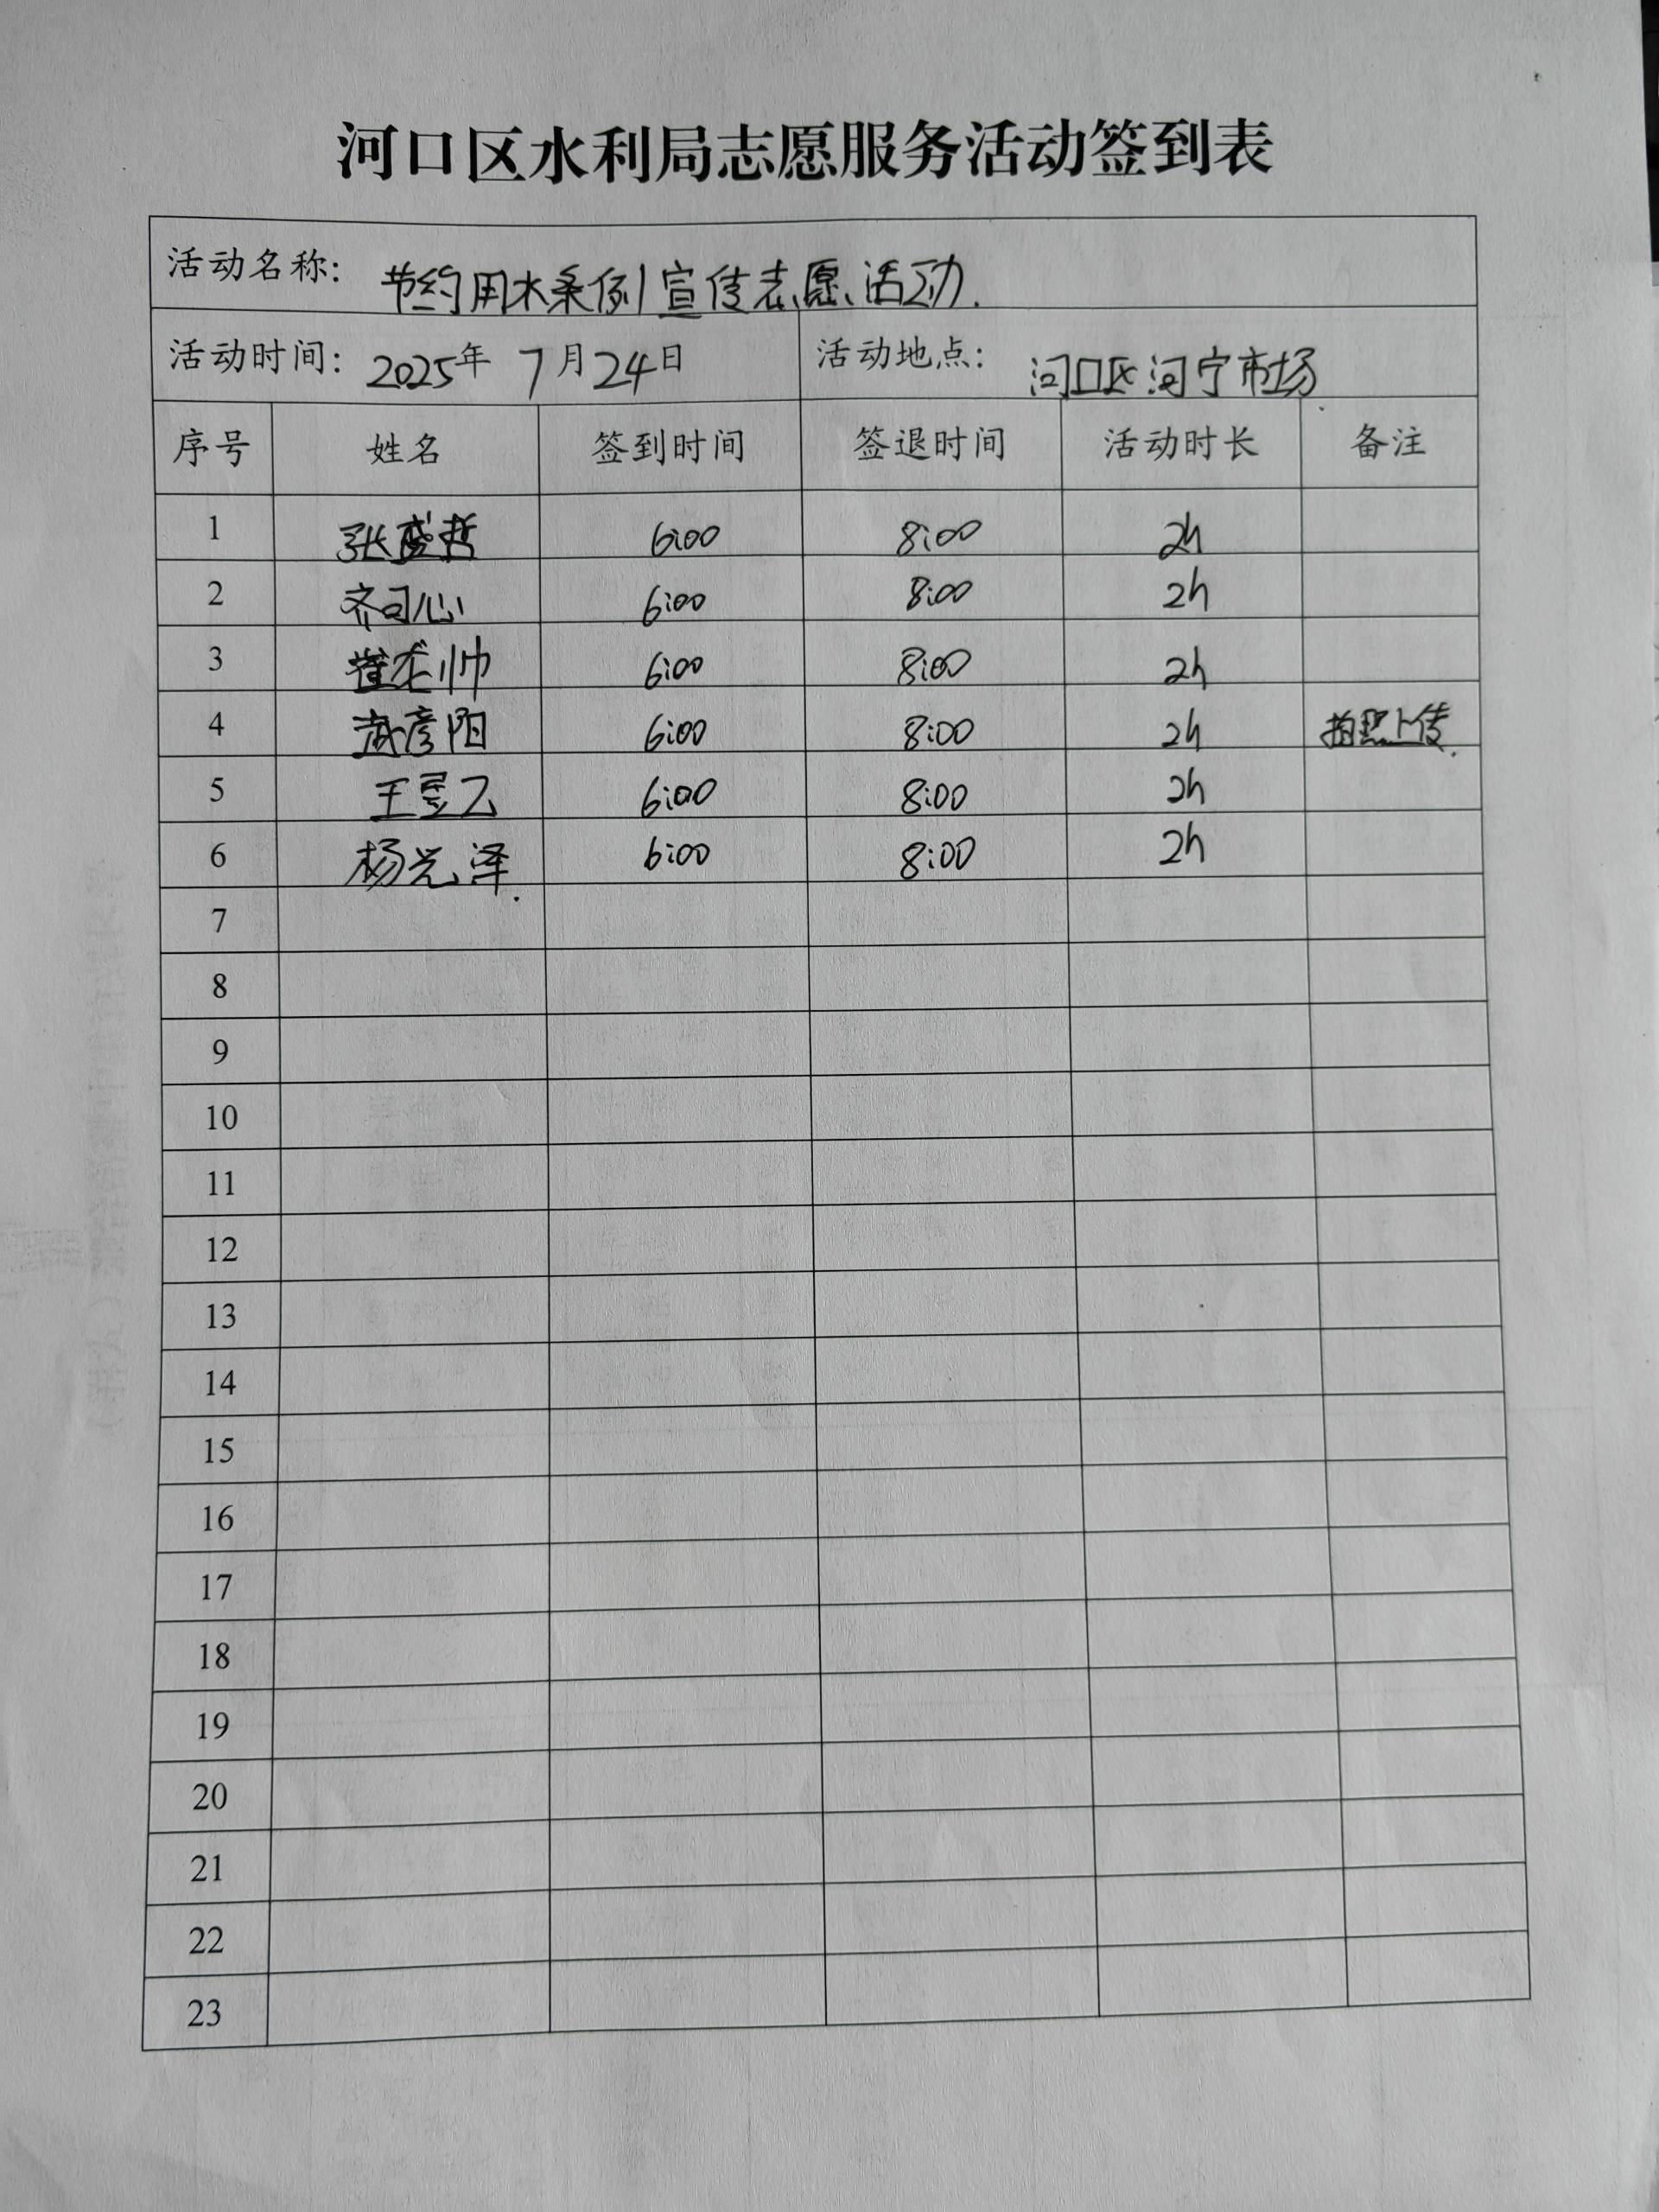 河口区水利局志愿服务活动签到表
活动名称: 节约用水条例宣传志愿活动.
活动时间: 2025年 7月24日 活动地点: 河口区河宁市场
序号 姓名 签到时间 签退时间 活动时长 备注
1 张盛哲 6:00 8:00 2h
2 齐司心 6:00 8:00 2h
3 崔龙帅 6:00 8:00 2h
4 武彦阳 6:00 8:00 2h 拍照上传.
5 王 乙 6:00 8:00 2h
6 杨光泽. 6:00 8:00 2h
7
8
9
10
11
12
13
14
15
16
17
18
19
20
21
22
23